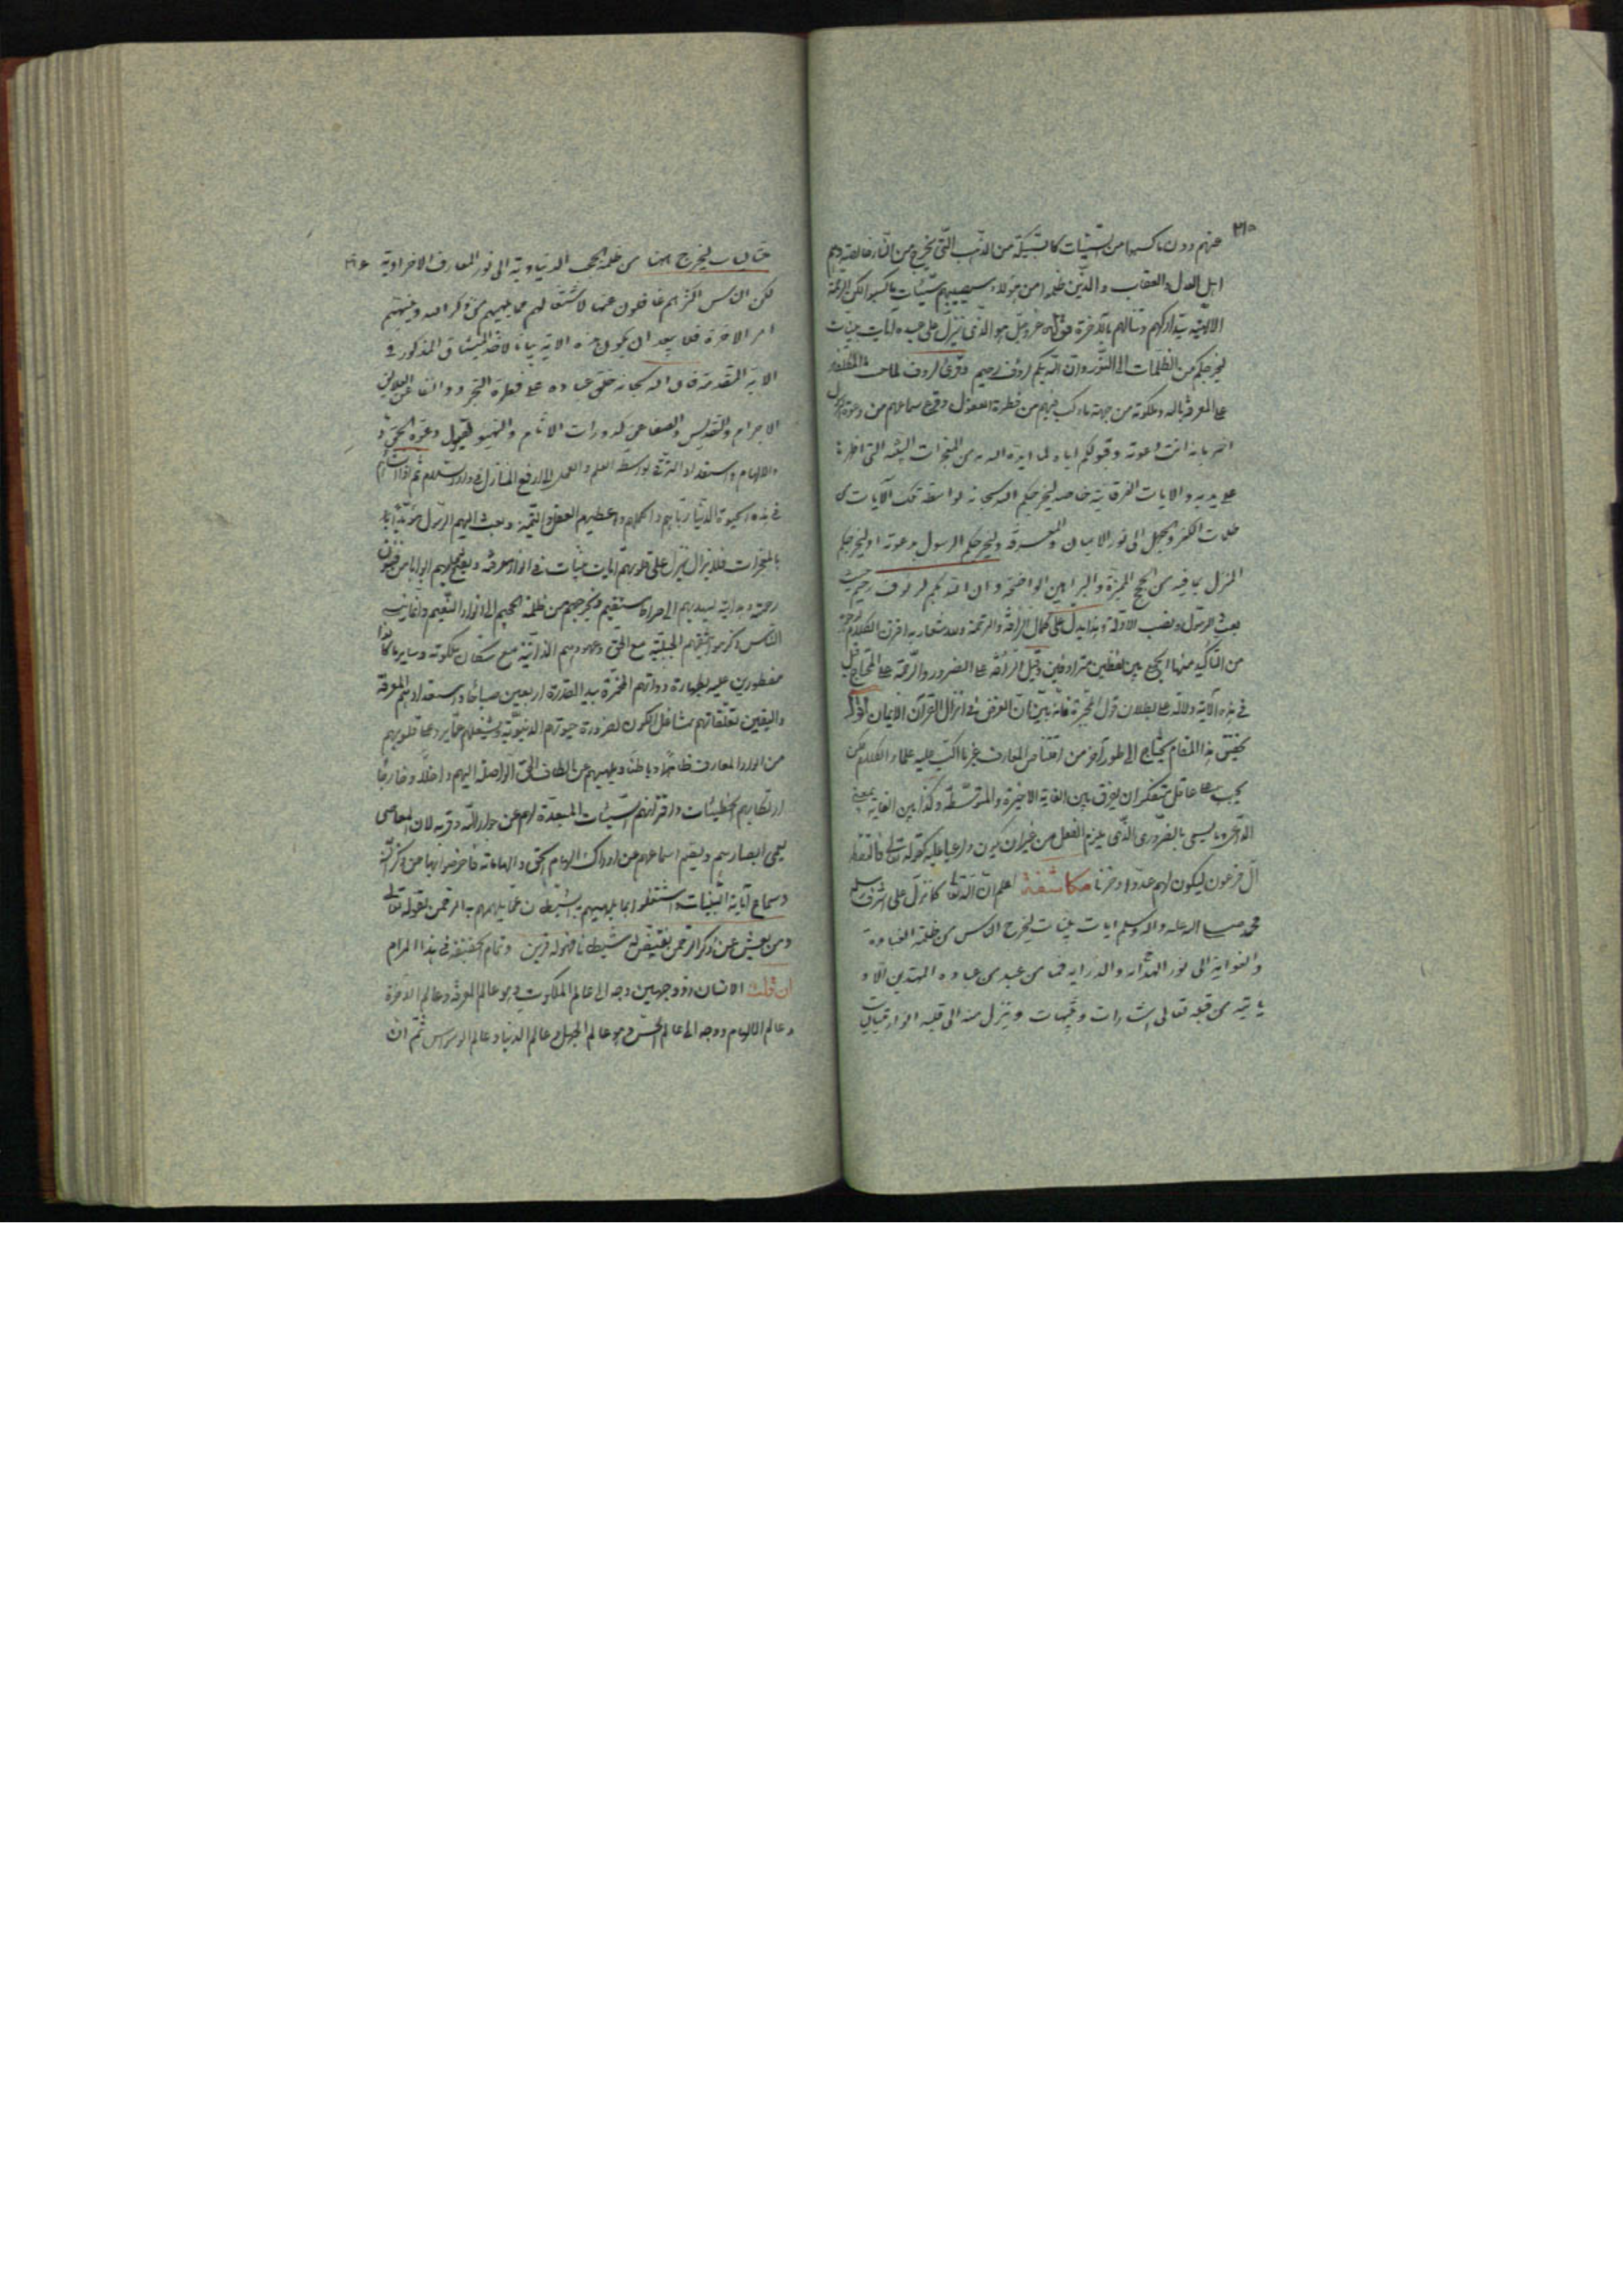 ٣١٥
عنهم درن ما كسبوا من السيئات كالسبيكة من الذهب التى يخرج من النار خالصة وهم
اهل العدل والعقاب والذين ظلموا من هؤلاء سيصيبهم سيئات ما كسبوا لكن الرحمة
الالهية يتداركهم وتنالهم بالاخرة قوله عز وجل هو الذى ينزل على عبده ايات بينات
ليخرجكم من الظلمات الى النور وان الله بكم لرؤف رحيم وقرئ لروف
على المعرفة بالله وملكوته من جهة ما ركب فيهم من فطرة العقول وقرع سماعهم من دعوة الرسول
اخبر بانه دعوته وقبولكم اياه لما ايده الله من المعجزات البينة التى اظهرها
على يديه والايات الفرقانية خاصة ليخرجكم الله سبحانه بواسطة تلك الآيات من
ظلمات الكفر والجهل الى نور الايمان والمعرفة وليخرجكم الرسول بدعوته او ليخرجكم
المنزل بما فيه من الحجج المميزة والبراهين الواضحة وان الله بكم لرءوف رحيم حيث
بعث الرسول ونصب الادلة وهذا يدل على كمال الرأفة والرحمة وللاشعار به اقرن الكلام
من التأكيد منها الجمع بين لفظين مترادفين وقيل الرأفة على المضرور والرحمة على المحتاج قيل
فى هذه الآية دلالة على بطلان قول المجبرة فانه بين ان الغرض فى انزال القرآن الايمان اقول
تحقيق هذا المقام يحتاج الى طور آخر من اقتناص المعارف غير ما اكب عليه علماء الكلام لكن
يجب على عاقل متفكر ان يفرق بين الغاية الاخيرة والمتوسطة وكذا بين الغاية بمعنى
الداعى وما يسمى بالضرورى الذى يلزم الفعل من غير ان يكون داعيا عليه كقوله تعالى فالتقطه
آل فرعون ليكون لهم عدوا وحزنا مكاشفة اعلم ان الله تعالى كما نزل على اشرف
محمد صلى الله عليه واله وسلم ايات بينات ليخرج الناس من ظلمة الغباوة
والغواية الى نور الهداية والدراية فما من عبد من عباده المهتدين الا و
ياتيه من قبله تعالى اشارات وتنبيهات وينزل منه الى قلبه انوار تجليات
٣١٦
ليخرج ايضا من ظلمة الحجب الدنياوية الى نور المعارف الاخراوية
لكن الناس اكثرهم غافلون عنها لاشتغالهم بما يلهيهم عن ذكر الله وينسيهم
امر الاخرة فلا يبعد ان يكون هذه الاية بيانا لاخذ الميثاق المذكور فى
الاية المتقدمة فان الله سبحانه خلق عباده على فطرة التجرد والصفا عن العلايق
الاجرام والتقديس والصفا عن كدورات الاثام والتهيؤ لقبول دعوة الحق و
والالهام واستعداد الترقى بواسطة العلم والعمل الى ارفع المنازل فى دار السلام ثم
فى هذه الحيوة الدنيا رباهم واكملهم واعطيهم العقل والتميز وبعث اليهم الرسول مؤيدا
بالمعجزات فلا يزال ينزل على قلوبهم ايات بينات فى انوار معرفة ويفتح عليهم ابوابا من
رحمة وهداية ليهديهم الى صراط مستقيم ويخرجهم من ظلمة الجحيم الى انوار النعيم
الناس ذكر مواثيقهم الجبلية مع الحق وعهودهم الذاتية مع سكان ملكوته
مفطورين عليه بطهارة ذواتهم المخمرة بيد القدرة اربعين صباحا واستعدادهم المعرفة
واليقين لتعلقاتهم بمشاغل الكون لضرورة حيوتهم الدنيوية ويشغلهم عما يرد على قلوبهم
من انوار المعارف ظاهرا وباطنا ويلهيهم عن الطاف الحق الواصلة اليهم داخلا وخارجا
ارتكابهم الخطيئات واقترافهم السيئات المبعدة لهم عن جوار الله وقربه لان المعاصى
يعمى ابصارهم ويصم اسماعهم عن ادراك الهام الحق والهاماته فاعرضوا بها عن ذكر الله
وسماع آياته البينات واشتغلوا بما يلهيهم به الشيطان عما يلهمهم به الرحمن لقوله تعالى
ومن يعش عن ذكر الرحمن نقيض له شيطانا فهو له قرين وتمام تحقيقه فى هذا المرام
ان قلت الانسان ذو وجهين وجه الى عالم الملكوت وهو عالم المعرفة وعالم الاخرة
وعالم الالهام ووجه الى عالم الحس وهو عالم الجهل وعالم الدنيا وعالم الوسواس ثم ان